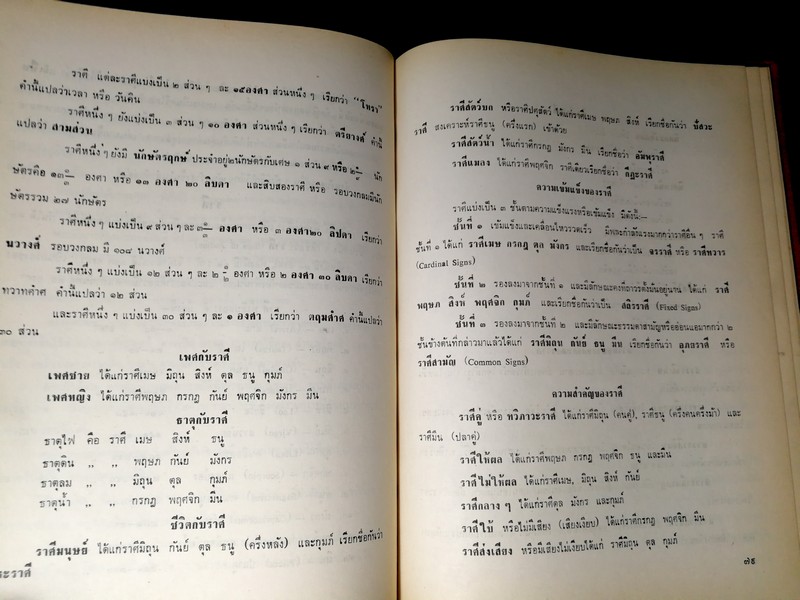 ราศี แต่ละราศีแบ่งเป็น ๒ ส่วน ๆ ละ ๑๕องศา ส่วนหนึ่ง ๆ เรียกว่า "โหรา"
คำนี้แปลว่าเวลา หรือ วันคืน
ราศีหนึ่ง ๆ ยังแบ่งเป็น ๓ ส่วน ๆ ๑๐ องศา ส่วนหนึ่ง ๆ เรียกว่า ตรีถางค์ คำนี้
แปลว่า สามส่วน
ราศีหนึ่ง ๆ ยังมี นักษัตรฤกษ์ ประจำอยู่๒นักษัตรกับเศษ ๑ ส่วน ๙ หรือ ๒ นัก
ษัตรคือ ๑๓ องศา หรือ ๑๓ องศา ๒๐ ลิบดา และสิบสองราศี หรือ รอบวงกลมมีนัก
ษัตรรวม ๒๗ นักษัตร
ราศีหนึ่ง ๆ แบ่งเป็น ๙ ส่วน ๆ ละ ๓ องศา หรือ ๓ องศา๒๐ ลิปดา เรียกว่า
นวางศ์ รอบวงกลม มี ๑๐๘ นวางศ์
ราศีหนึ่ง ๆ แบ่งเป็น ๑๒ ส่วน ๆ ละ ๒ องศา หรือ ๒ องศา ๓๐ ลิบดา เรียกว่า
ทวาทศำศ คำนี้แปลว่า ๑๒ ส่วน
และราศีหนึ่ง ๆ แบ่งเป็น ๓๐ ส่วน ๆ ละ ๑ องศา เรียกว่า ตฤมสำศ คำนี้แปลว่า
๓๐ ส่วน
เพศกับราศี
เพศชาย ได้แก่ราศีเมษ มิถุน สิงห์ ตุล ธนู กุมภ์
เพศหญิง ได้แก่ราศีพฤษภ กรกฎ กันย์ พฤศจิก มังกร มีน
ธาตุกับราศี
ธาตุไฟ คือ ราศี เมษ สิงห์ ธนู
ธาตุดิน ,, ,, พฤษภ กันย์ มังกร
ธาตุลม ,, ,, มิถุน ตุล กุมภ์
ธาตุน้ำ ,, ,, กรกฎ พฤศจิก มีน
ชีวิตกับราศี
ราศีมนุษย์ ได้แก่ราศีมิถุน กันย์ ตุล ธนู (ครึ่งหลัง) และกุมภ์ เรียกชื่อกันว่า
ระราศี
ราศีสัตว์บก หรือราศีปศุสัตว์ ได้แก่ราศีเมษ พฤษภ สิงห์ เรียกชื่อกันว่า ปัสวะ
ราศี สงเคราะห์ราศีธนู (ครึ่งแรก) เข้าด้วย
ราศีสัตว์น้ำ ได้แก่ราศีกรกฎ มังกร มีน เรียกชื่อว่า อัมพุราศี
ราศีแมลง ได้แก่ราศีพฤศจิก ราศีเดียวเรียกชื่อว่า กีฏะราศี
ความเข้มแข็งของราศี
ราศีแบ่งเป็น ๓ ชั้นตามความแข็งแรงหรือเข้มแข็ง มีดังนี้:—
ชั้นที่ ๑ เข้มแข็งและเคลื่อนไหวรวดเร็ว มีพละกำลังแรงมากกว่าราศีอื่น ๆ ราศี
ชั้นที่ ๑ ได้แก่ ราศีเมษ กรกฎ ตุล มังกร และเรียกชื่อกันว่าเป็น จรราศี หรือ ราศีทวาร
(Cardinal Signs)
ชั้นที่ ๒ รองลงมาจากชั้นที่ ๑ และมีลักษณะคงที่ถาวรดั่งมั่นอยู่นาน ได้แก่ ราศี
พฤษภ สิงห์ พฤศจิก กุมภ์ และเรียกชื่อกันว่าเป็น สถิรราศี (Fixed Signs)
ชั้นที่ ๓ รองลงมาจากชั้นที่ ๒ และมีลักษณะธรรมดาสามัญหรืออ่อนแอมากกว่า ๒
ชั้นข้างต้นที่กล่าวมาแล้วได้แก่ ราศีมิถุน กันย์ ธนู มีน เรียกชื่อกันว่า อุภยราศี หรือ
ราศีสามัญ (Common Signs)
ความสำคัญของราศี
ราศีคู่ หรือ ทวิภาวะราศี ได้แก่ราศีมิถุน (คนคู่), ราศีธนู (ครึ่งคนครึ่งม้า) และ
ราศีมีน (ปลาคู่)
ราศีให้ผล ได้แก่ราศีพฤษภ กรกฎ พฤศจิก ธนู และมีน
ราศีไม่ให้ผล ได้แก่ราศีเมษ, มิถุน สิงห์ กันย์
ราศีกลาง ๆ ได้แก่ราศีตุล มังกร และกุมภ์
ราศีใบ้ หรือไม่มีเสียง (เสียงเงียบ) ได้แก่ราศีกรกฎ พฤศจิก มีน
ราศีส่งเสียง หรือมีเสียงไม่เงียบได้แก่ ราศีมิถุน ตุล กุมภ์
๗๕